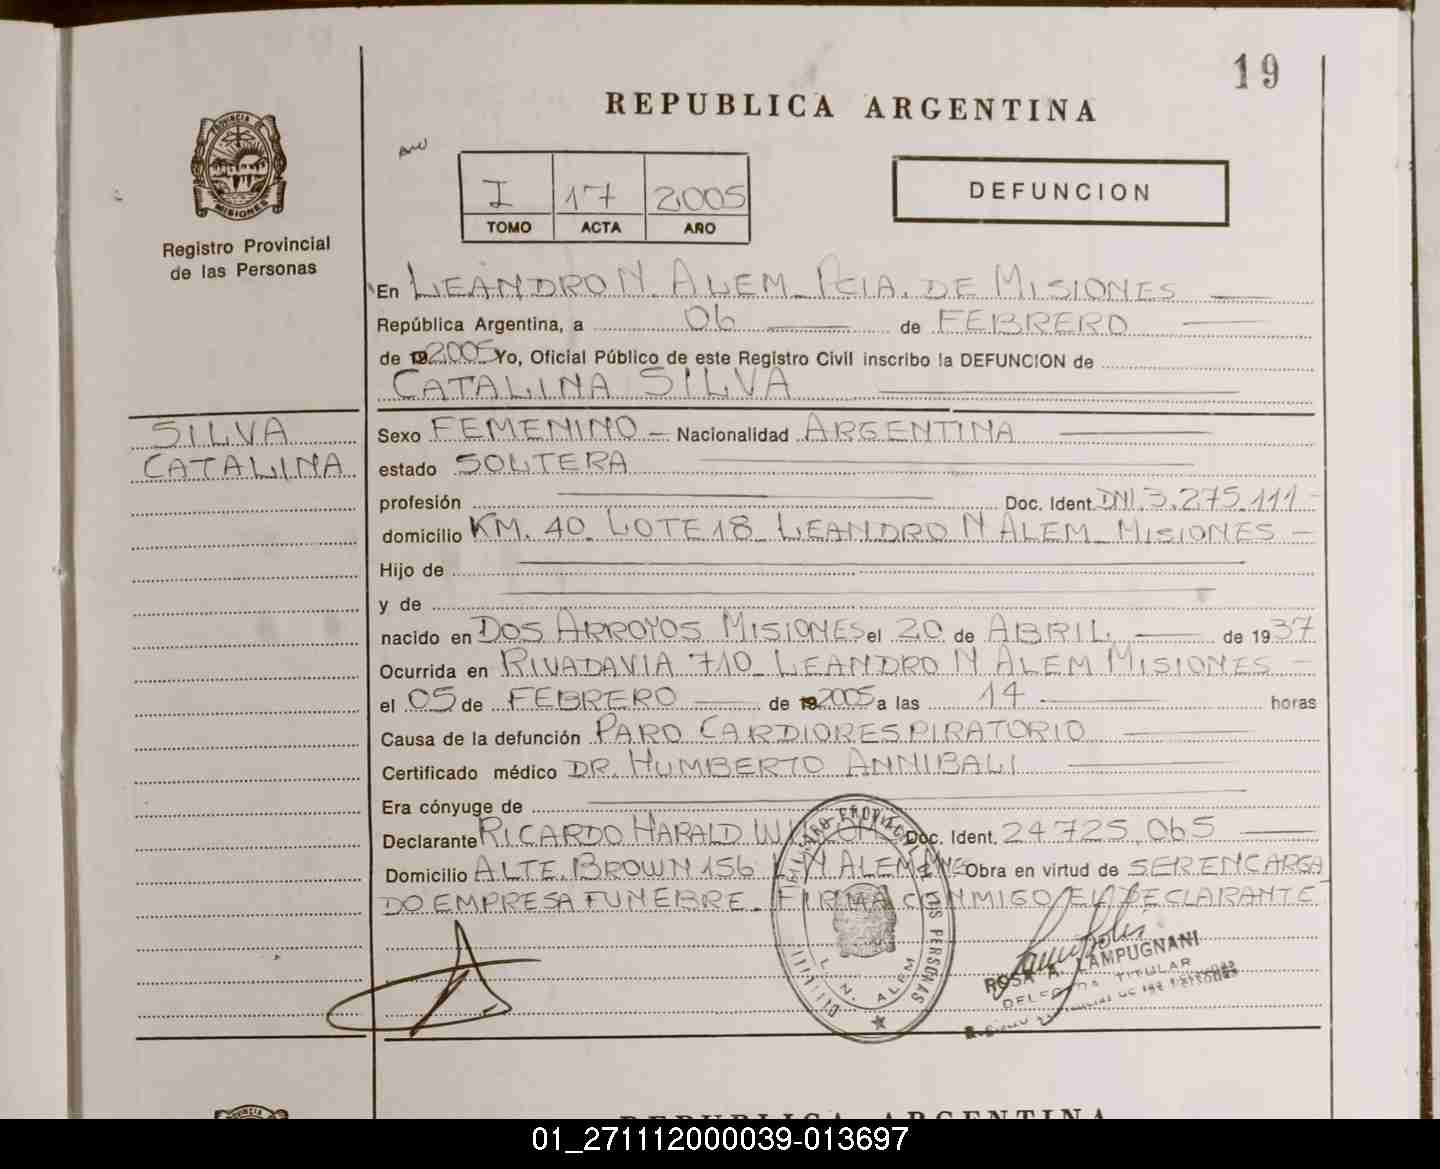 19
REPUBLICA ARGENTINA
PROVINCIA DE
MISIONES
Registro Provincial
de las Personas
I 17 2005
TOMO ACTA AÑO
DEFUNCION
En LEANDRO N. ALEM_PCIA. DE MISIONES
República Argentina, a 06 de FEBRERO
de 192005 Yo, Oficial Público de este Registro Civil inscribo la DEFUNCION de
CATALINA SILVA
SILVA
CATALINA
Sexo FEMENINO - Nacionalidad ARGENTINA
estado SOLTERA
profesión Doc. Ident. DNI.3.275.111-
domicilio KM. 40_ LOTE 18_ LEANDRO N ALEM_ MISIONES -
Hijo de
y de
nacido en DOS ARROYOS MISIONES el 20 de ABRIL de 1937
Ocurrida en RIVADAVIA 710_ LEANDRO N ALEM MISIONES -
el 05 de FEBRERO de 192005 a las 14 horas
Causa de la defunción PARO CARDIORESPIRATORIO
Certificado médico DR. HUMBERTO ANNIBALI
Era cónyuge de
Declarante RICARDO HARALD Doc. Ident. 24.725.065
Domicilio ALTE. BROWN 156 L N ALEM Mnes Obra en virtud de SER ENCARGA
DO EMPRESA FUNEBRE_ FIRMA CONMIGO EL DECLARANTE
PROVINCIAL DE LAS PERSONAS
L. N. ALEM
ROSA A. LAMPUGNANI
DELEGADA TITULAR
REPUBLICA ARGENTINA
01_271112000039-013697